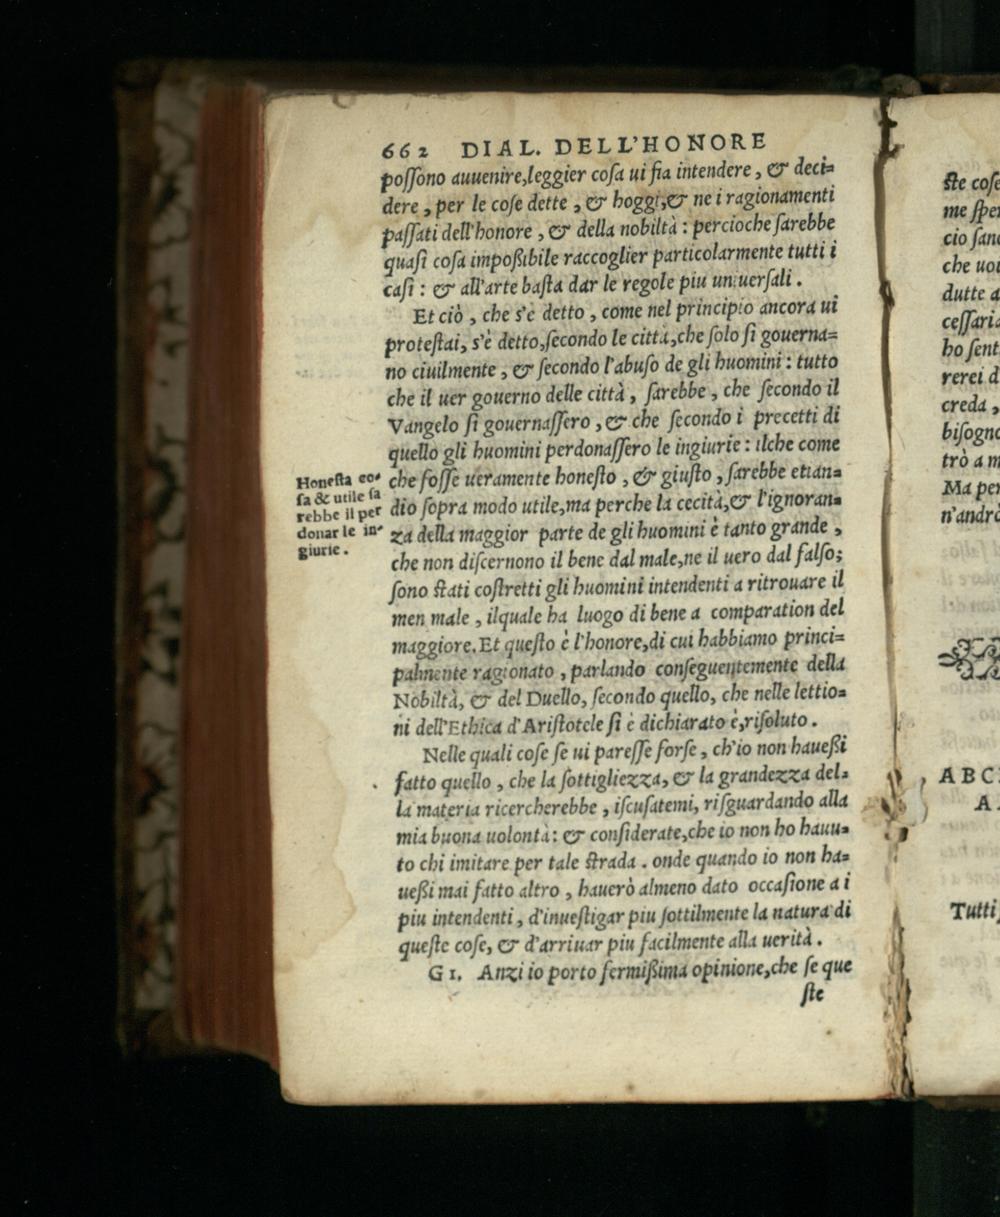 662 DIAL. DELL'HONORE
possono auuenire,leggier cosa ui fia intendere, & deci=
dere, per le cose dette, & hoggi,& ne i ragionamenti
passati dell'honore, & della nobiltà : percioche sarebbe
quasi cosa impoßibile raccoglier particolarmente tutti i
casi : & all'arte basta dar le regole piu uniuersali.
Et ciò, che s'è detto, come nel principio ancora ui
protestai, s'è detto,secondo le città,che solo si gouerna=
no ciuilmente, & secondo l'abuso de gli huomini : tutto
che il uer gouerno delle città, sarebbe, che secondo il
Vangelo si gouernassero, & che secondo i precetti di
quello gli huomini perdonassero le ingiurie : ilche come
che fosse ueramente honesto, & giusto, sarebbe etian=
dio sopra modo utile,ma perche la cecità,& l'ignoran=
za della maggior parte de gli huomini è tanto grande,
che non discernono il bene dal male,ne il uero dal falso;
sono stati costretti gli huomini intendenti a ritrouare il
men male, ilquale ha luogo di bene a comparation del
maggiore. Et questo è l'honore,di cui habbiamo princi=
palmente ragionato, parlando conseguentemente della
Nobiltà, & del Duello, secondo quello, che nelle lettio=
ni dell'Ethica d'Aristotele si è dichiarato è,risoluto.
Nelle quali cose se ui paresse forse, ch'io non haueßi
fatto quello, che la sottigliezza, & la grandezza del=
la materia ricercherebbe, iscusatemi, risguardando alla
mia buona uolontà: & considerate,che io non ho hauu=
to chi imitare per tale strada. onde quando io non ha=
ueßi mai fatto altro, hauerò almeno dato occasione a i
piu intendenti, d'inuestigar piu sottilmente la natura di
queste cose, & d'arriuar piu facilmente alla uerità.
GI. Anzi io porto fermißima opinione,che se que
ste
Honesta co=
sa & utile sa
rebbe il per
donar le in=
giurie.
ste cose
me sper
cio sanc
che uoi
dutte a
cessaria
ho sent
rerei d
creda,
bisogno
trò a m
Ma per
n'andrò
ABC
A
Tutti